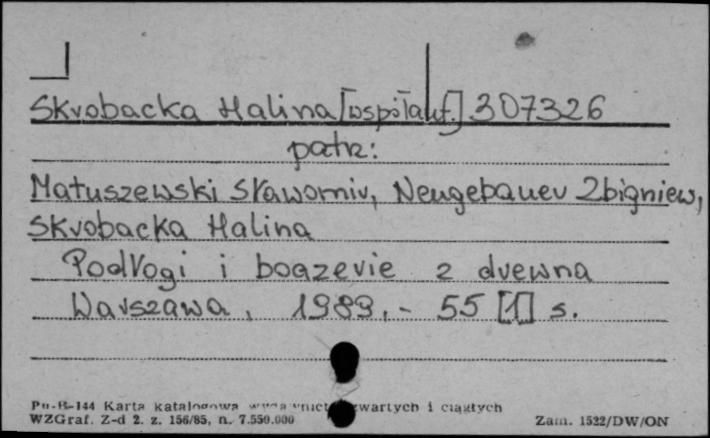 Skrobacka Halina [współaut.] 307326
patrz:
Matuszewski Sławomir, Neugebauer Zbigniew,
Skrobacka Halina
Podłogi i boazerie z drewna
Warszawa, 1989.- 55 [1] s.
Pu-B-144 Karta katalogowa zwartych i ciągłych
WZGraf. Z-d 2. z. 156/85, n. 7.550.000 Zam. 1522/DW/ON